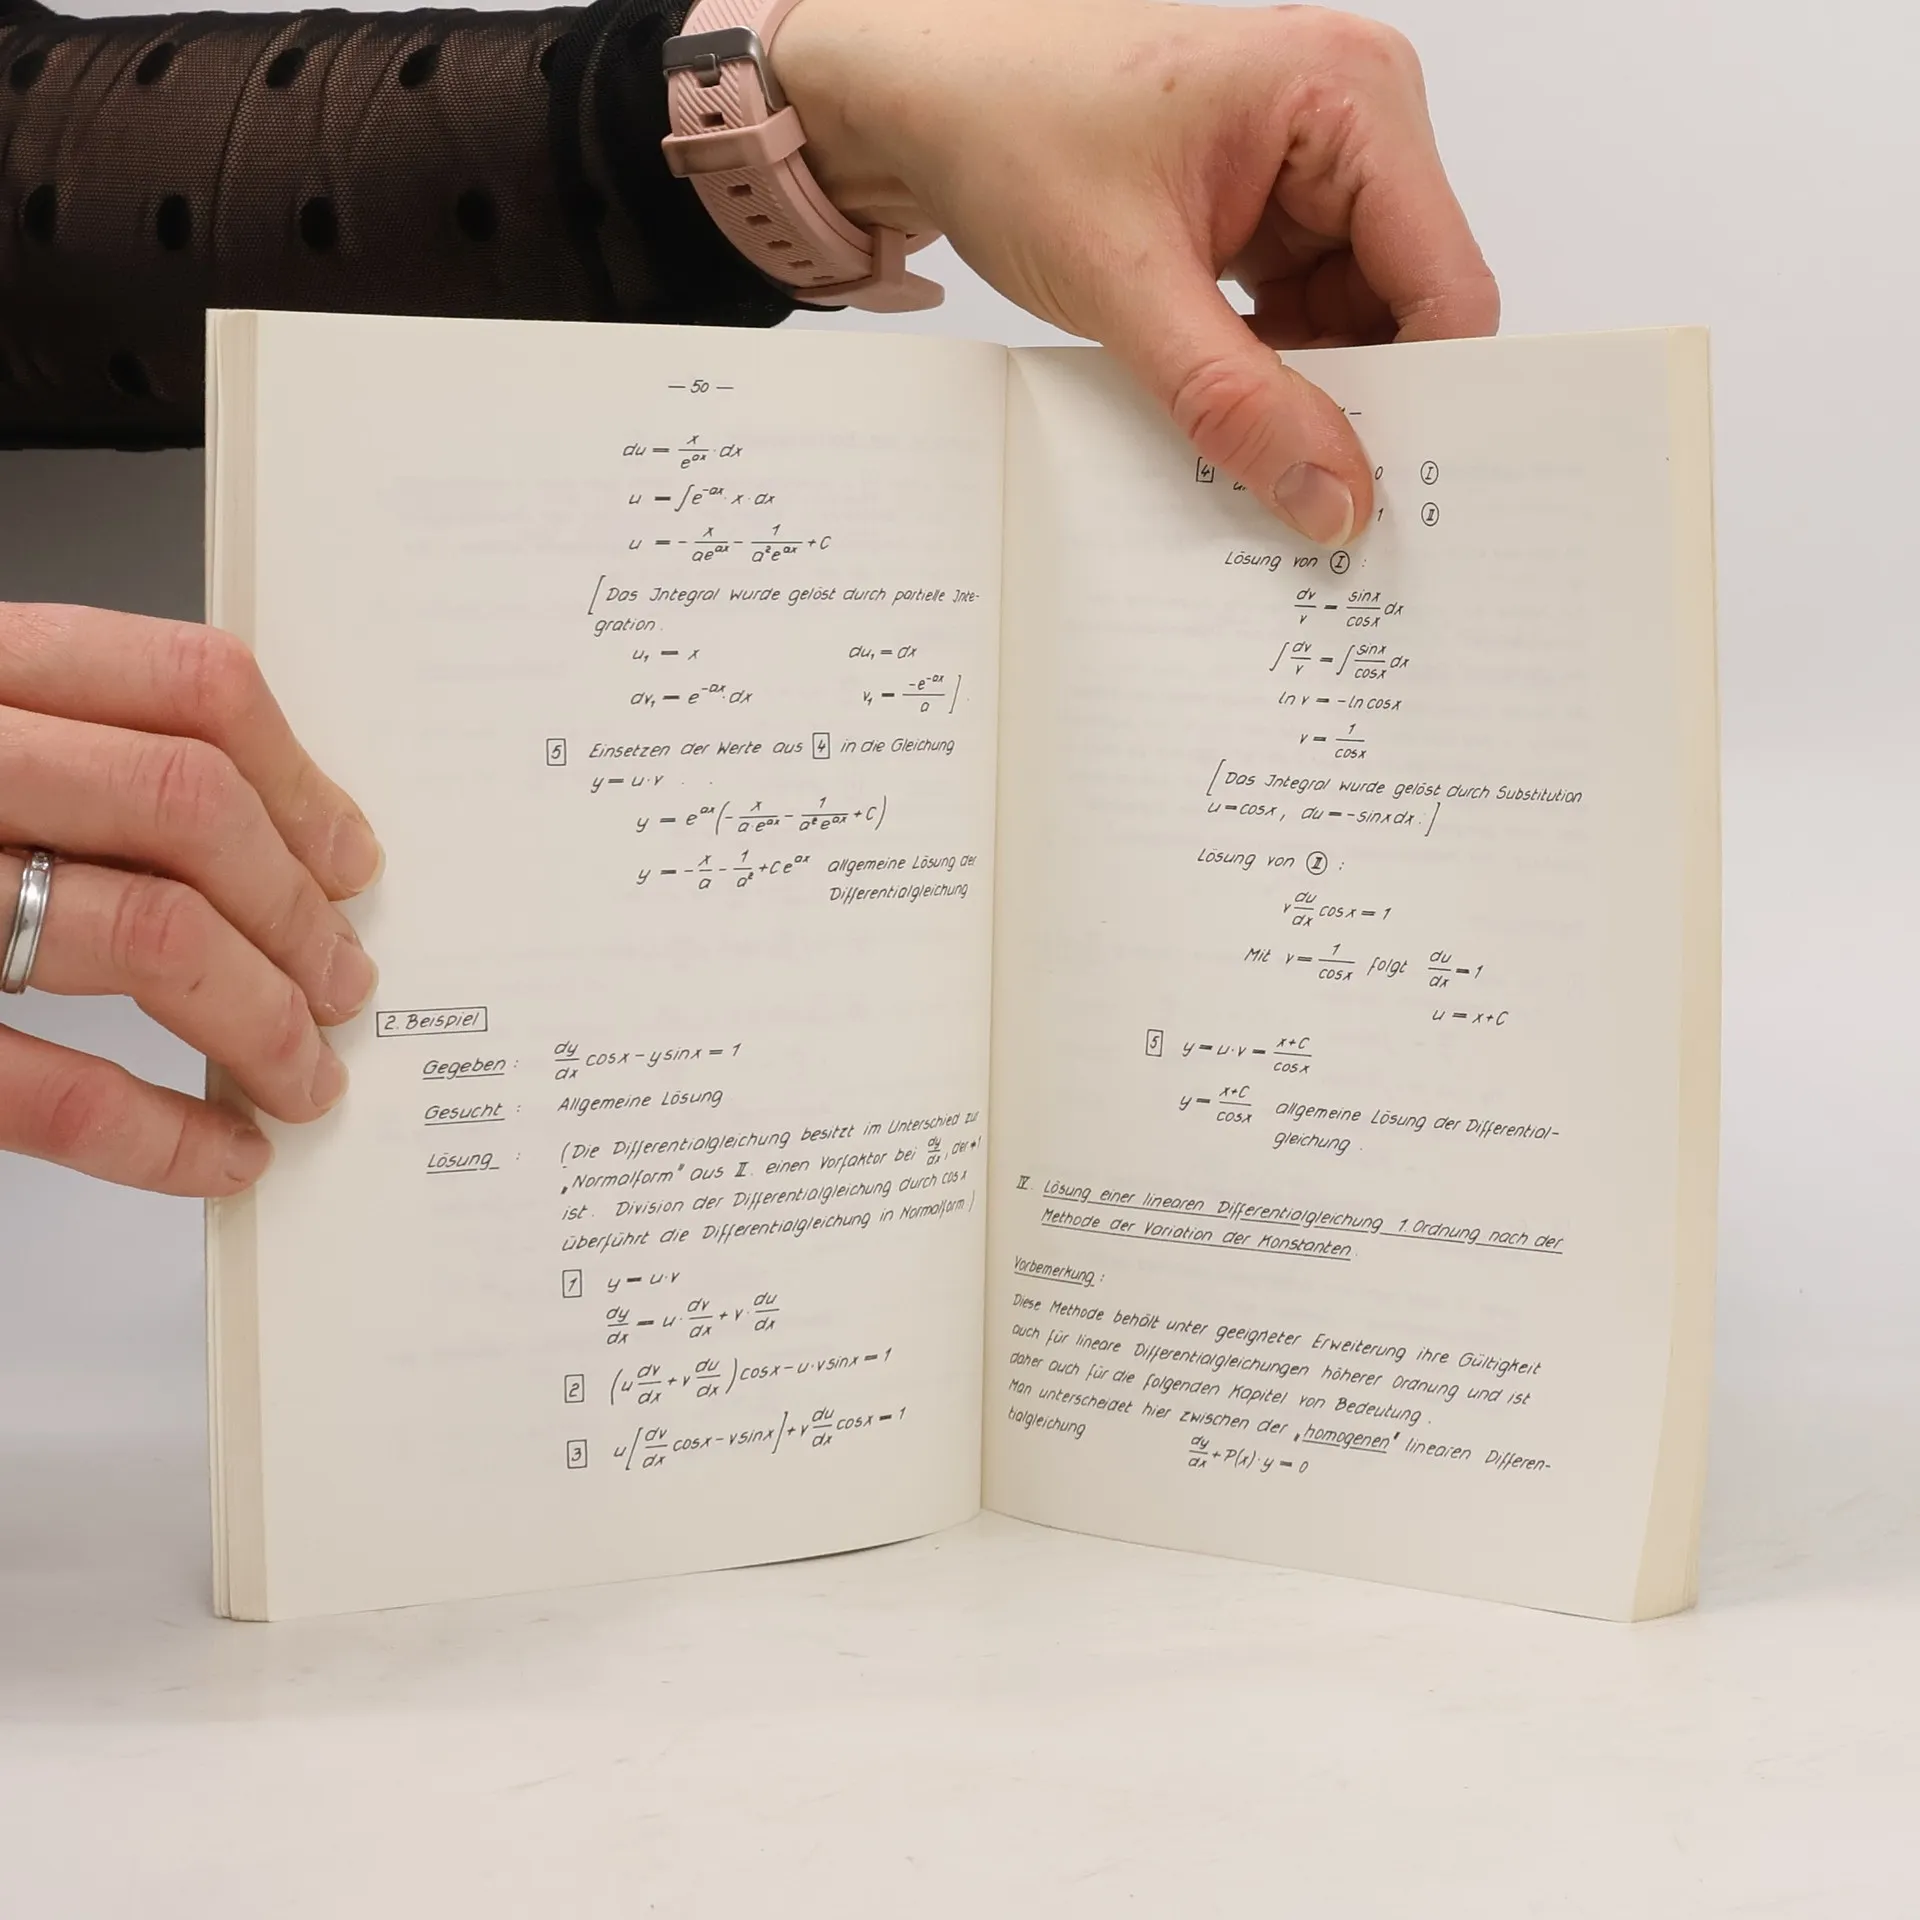 — 50 —
du = x/e^ax · dx
u = ∫e^-ax · x · dx
u = - x/ae^ax - 1/a²e^ax + C
[Das Integral wurde gelöst durch partielle Inte-
gration.
u₁ = x du₁ = dx
dv₁ = e^-ax · dx v₁ = -e^-ax/a ].
5 Einsetzen der Werte aus 4 in die Gleichung
y = u·v
y = e^ax (- x/a·e^ax - 1/a²e^ax + C)
y = - x/a - 1/a² + Ce^ax allgemeine Lösung der
Differentialgleichung
2. Beispiel
Gegeben : dy/dx cosx - y sinx = 1
Gesucht : Allgemeine Lösung
Lösung : (Die Differentialgleichung besitzt im Unterschied zur
„Normalform" aus II. einen Vorfaktor bei dy/dx, der ≠ 1
ist. Division der Differentialgleichung durch cos x
überführt die Differentialgleichung in Normalform.)
1 y = u·v
dy/dx = u · dv/dx + v · du/dx
2 (u dv/dx + v du/dx) cosx - u·v sinx = 1
3 u[dv/dx cosx - v sinx] + v du/dx cosx = 1
4 0 I
1 II
Lösung von I :
dv/v = sinx/cosx dx
∫ dv/v = ∫ sinx/cosx dx
ln v = - ln cosx
v = 1/cosx
[Das Integral wurde gelöst durch Substitution
u = cosx, du = - sinx dx.]
Lösung von II :
v du/dx cosx = 1
Mit v = 1/cosx folgt du/dx = 1
u = x+C
5 y = u·v = x+C/cosx
y = x+C/cosx allgemeine Lösung der Differential-
gleichung.
IV. Lösung einer linearen Differentialgleichung 1. Ordnung nach der
Methode der Variation der Konstanten.
Vorbemerkung :
Diese Methode behält unter geeigneter Erweiterung ihre Gültigkeit
auch für lineare Differentialgleichungen höherer Ordnung und ist
daher auch für die folgenden Kapitel von Bedeutung.
Man unterscheidet hier zwischen der „homogenen" linearen Differen-
tialgleichung
dy/dx + P(x)·y = 0